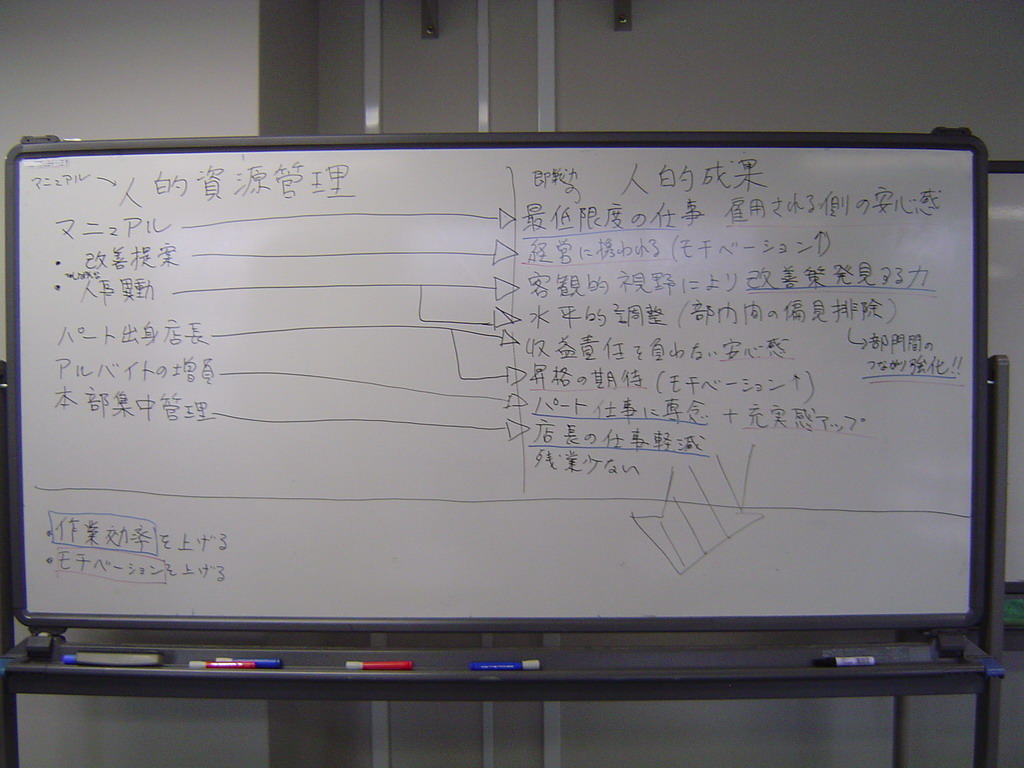 マニュアル
人的資源管理
マニュアル
・改善提案
・人事異動
パート出身店長
アルバイトの増員
本部集中管理
即戦力の
人的成果
最低限度の仕事 雇用される側の安心感
経営に携われる(モチベーション↑)
客観的視野により改善策発見する力
水平的調整(部内間の偏見排除)
部門間の
つながり強化!!
収益責任を負わない安心感
昇格の期待(モチベーション↑)
パート仕事に専念 + 充実感アップ
店長の仕事軽減
残業少ない
・作業効率を上げる
・モチベーションを上げる